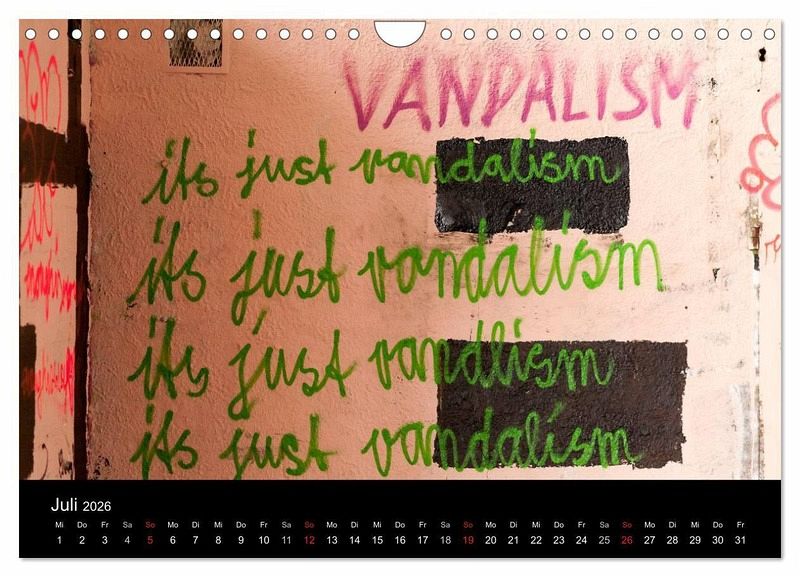 VANDALISM
its just vandalism
its just vandalism
its just vandlism
its just vandalism
Juli 2026
Mi Do Fr Sa So Mo Di Mi Do Fr Sa So Mo Di Mi Do Fr Sa So Mo Di Mi Do Fr Sa So Mo Di Mi Do Fr
1 2 3 4 5 6 7 8 9 10 11 12 13 14 15 16 17 18 19 20 21 22 23 24 25 26 27 28 29 30 31